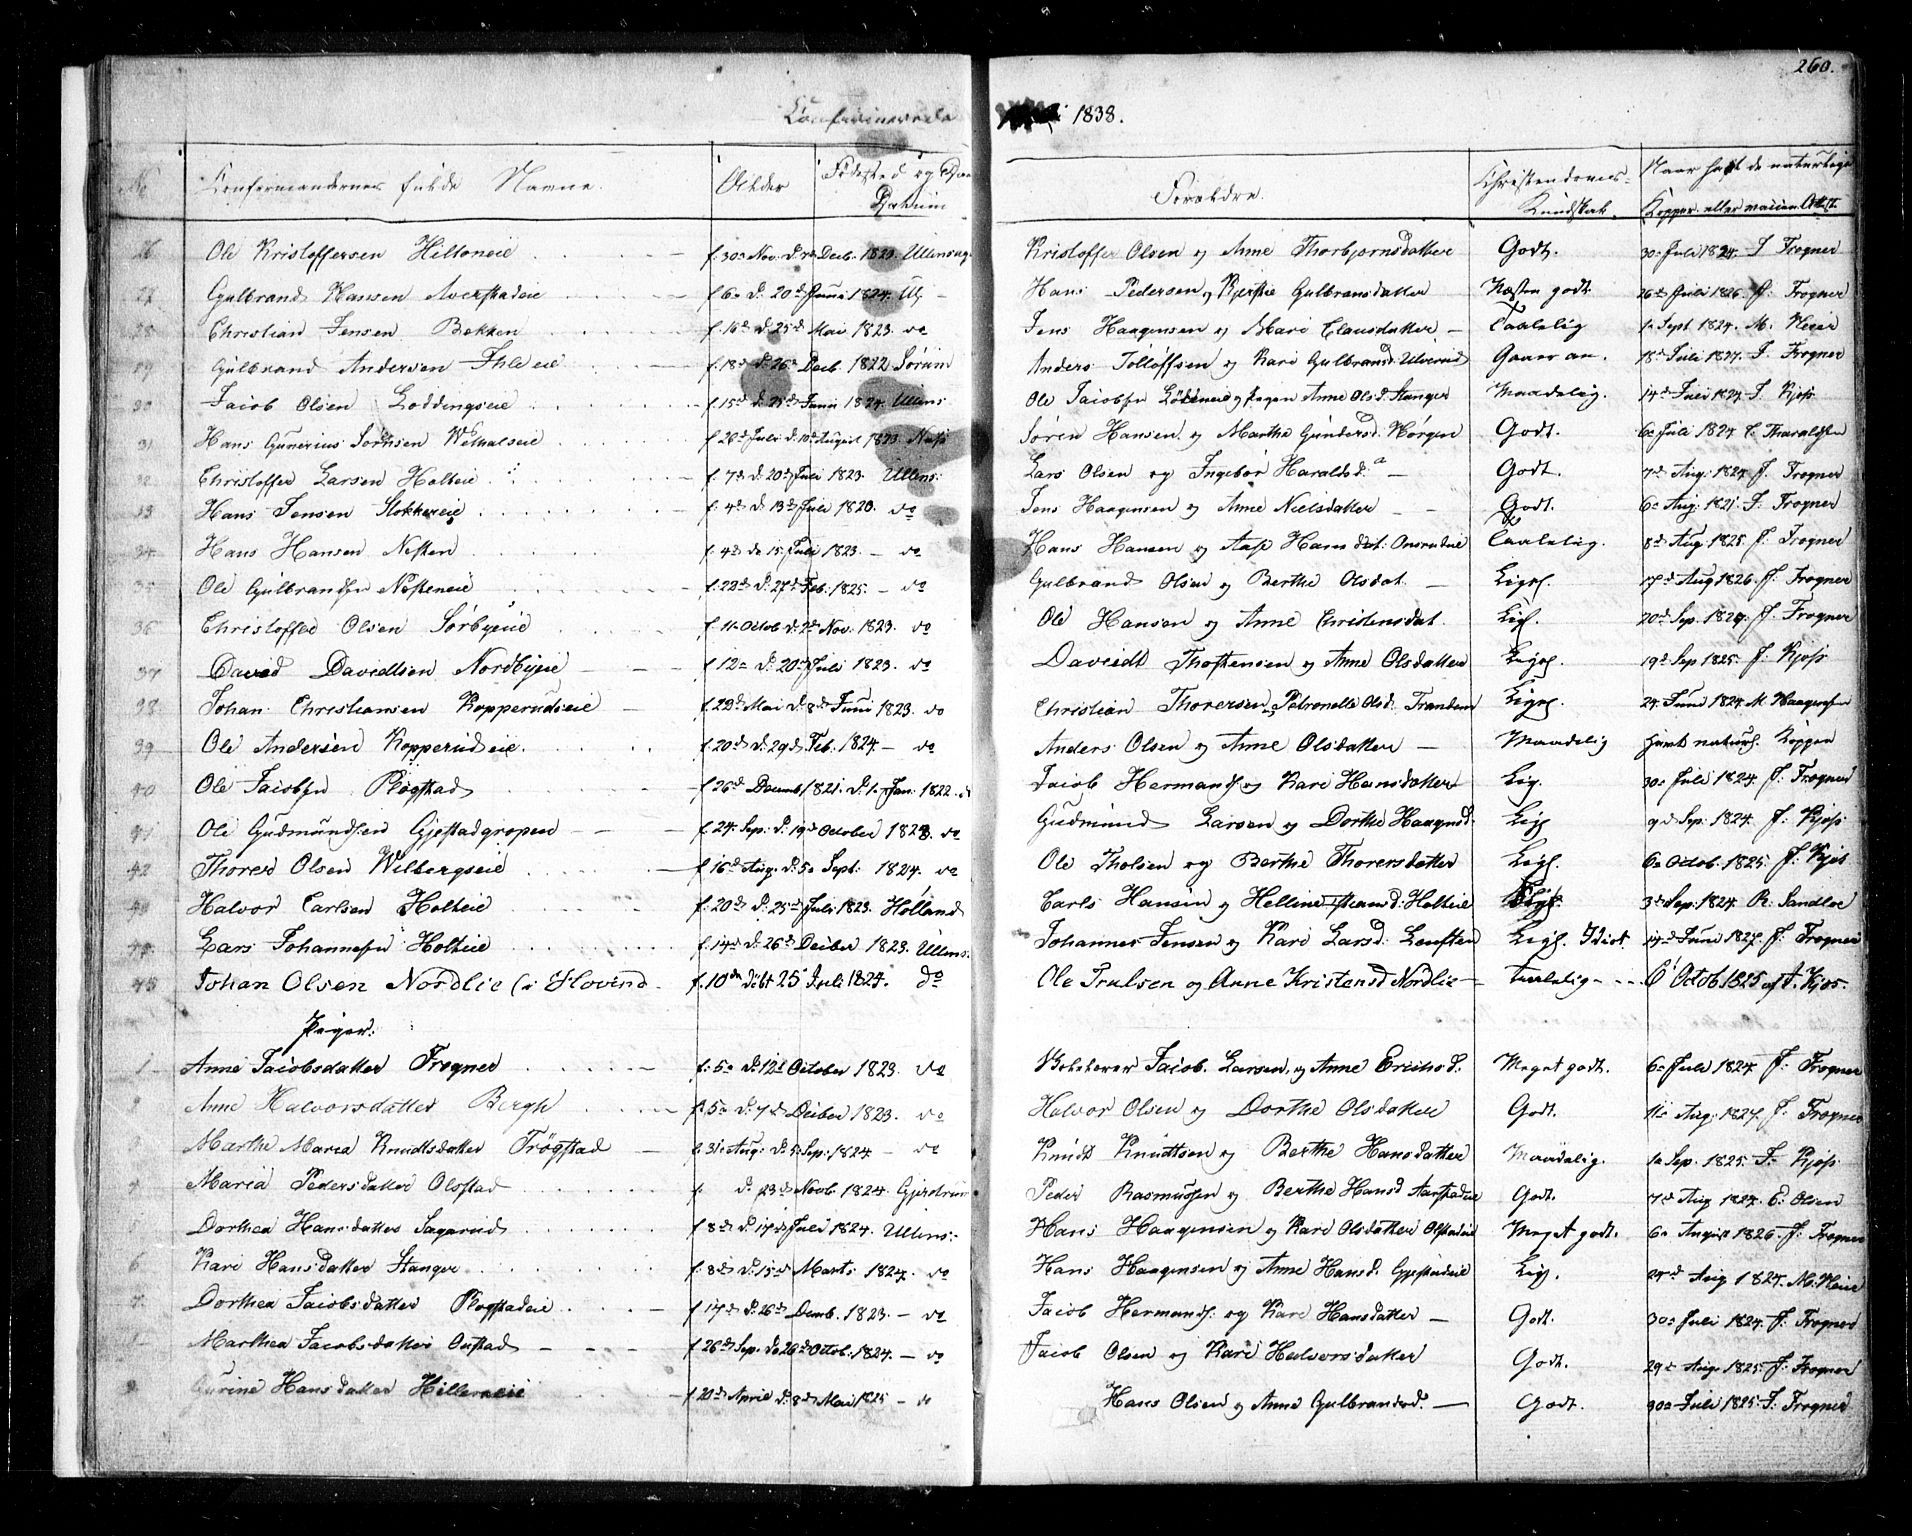 260.
Confirmerede 1838.
No Confirmandernes fulde Navne. Alder Fødested og Datum Forældre. Christendoms-Kundskab. Naar haft de naturlige Kopper eller vaccin. Attest.
26 Ole Kristoffersen Hiltoneie f. 30a Nov. d. Decb. 1823. Ullensag Kristoffer Olsen og Anne Thorbjørnsdatter Godt. 30a Juli 1824. J Frogner
27 Gulbrand Hansen Averstadeie f 6a D. 20d Juni 1824. Ul; Hans Pedersen og Kjerstie Gulbransdatter Næsten godt. 26de Juli 1826. J: Frogner
28 Christian Jensen Bekken f. 16d D. 25d Mai 1823. do Jens Haagensen og Mari Clausdatter Taalelig 1a Sept 1824. M. Meier
29 Gulbrand Andersen Ihleeie f. 18d D. 26a Decb. 1822 Sørum Anders Tolløffsen og Kari Gulbransd Ulverud Gaar an. 18d Juli 1827. J. Frogner
30 Jacob Olsen Loddingseie f. 15d D. 25d Juni 1824. Ullens Ole Jacobsen og Pigen Anne Olsd. Stanger Maadelig. 14d Juli 1827. J. Kjos
31 Hans Gunerius Sørensen f. 26d Juli D. 10d August 1823. Næs Søren Hansen og Marthe Gundersd. Norgen Godt. 6a Juli 1824 C. Tharaldsen
32 Christoffer Larsen Holteie f. 7d D: 20d Juli 1823. Ullens: Lars Olsen og Ingebor Haralds d.a Godt. 7d Aug: 1824 J. Frogner
33 Hans Jensen Slokkereie f. 4d D 13d Juli 1820. do Jens Haagensen og Anne Nielsdatter Godt. 6a Aug: 1821. J. Frogner
34 Hans Hansen Nesten f. 4d de 15. Juli 1823. do Hans Hansen og Aase Hans dat: Onsrudeie Taalelig. 8d Aug 1825. J. Frogner
35 Ole Gulbransen Nesteneie f. 22d D. 27d Feb. 1825. do Gulbrand Olsen og Berthe Olsdat. Ligel. 17d Aug 1826. J. Frogner
36 Christoffer Olsen Sørbyeie f. 11. Octob D. 2d Nov. 1823. do Ole Hansen og Anne Christensdat. Lig. 20d Sep. 1824. J. Frogner
37 David Davidtsen Nordbyeie f. 12a D. 20d Juli 1823. do Davidt Thostensen og Anne Olsdatter Ligel. 19d Sep 1825. J. Kjos
38 Johan Christiansen Kopperudseie f. 22d Mai D. 8d Juni 1823. do Christian Thorersen Petronelle Olsd. Trandem Ligel. 24. Juni 1824. M. Haagensen
39 Ole Andersen Kopperudeie. f. 20d D. 29d Feb. 1824 do Anders Olsen og Anne Olsdatter Maadelig Havt naturl. Kopper
40 Ole Jacobsen Rogstad f 26d Decemb. 1821. D. 1. Jan: 1822. do Jacob Hermands og Kari Hansdatter Lig. 30a Juli 1824. J. Frogner
41 Ole Gudmundsen Gjestadgropen f. 24. Sep: D. 19d October 1823. do Gudmund Larsen og Dorthe Haagnsd. Ligl 9d Sep: 1824. J. Kjos
42 Thorer Olsen Wilbergseie f 16d Aug. D. 5a Sept: 1824. do Ole Tholsen og Berthe Thorersdatter Ligl. 6a Octob. 1825. J. Kjos
43 Halvor Carlsen Holteie f. 20d D. 25d Juli 1823. Høland Carls Hansen og Helline Holteie Ligl. 3d Sep: 1824. R. Sandloe
44 Lars Johannesen Holteie f. 14d D. 26d Decber 1823. Ullens: Johannes Jensen og Kari Larsd: Ligl. Idiot. 14d Juni 1827. J. Frogner
45 Johan Olsen Nordlie (i Hovind. f. 10de døbt 25 Juli 1824. do Ole Trulsen og Anne Kristensd Nordlie taalelig 6' Octob 1825 af J. Kjos.
Piger:
1 Anne Jacobsdatter Frogner f. 5a D: 12d October 1823. do Jacob. Larsen og Anne Erichsd. Meget godt. 6a Juli 1824. J. Frogner
2 Anne Halvorsdatter Bergh f. 5a D. 7d Decber 1823. do Halvor Olsen og Dorthe Olsdatter Godt. Aug: 1827. J. Frogner
3 Marthe Maria Knudtsdatter Trøgstad f. 31. Aug: D. 5. Sep: 1824 do Knudt Knudtsen og Berthe Hansdatter Maadelig. 1a Sep. 1825. J. Kjos
4 Maria Pedersdatter Olstad f. d. 23d Novb. 1824. Gjerdrum Peder Rasmussen og Berthe Hansd Aarstadeie Godt. 7d Aug 1824. E. Olsen
5 Dorthea Hansdatter Sagerud f. 8d D. 17d Juli 1824. Ullens: Hans Haagensen og Kari Olsdatter Olstadeie Meget godt. 6a August 1826. J. Frogner
6 Kari Hansdatter Stanger f. 8d D. 15d Marts 1824. do Hans Haagensen og Anne Hansd. Gjestadeie Lig. 24d Aug 1824. M. Meie
7 Dorthea Jacobsdatter Rogstadeie f. 17d D. 26d Decemb. 1823. do Jacob Hermands: og Kari Hansdatter Godt. 30a Juli 1824. J. Frogner
8 Marthea Jacobsdatter Onstad f 26d Sep. de 26d Octob. 1824. do Jacob Olsen og Kari Halvorsdatter Godt. 29d Aug: 1825. J. Frogner
9 Gurine Hansdatter Hilleraeie f. 20d April D. 8d Mai 1825 do Hans Olsen og Anne Gulbrandsd. Godt. 30a Juli 1825. J. Frogner